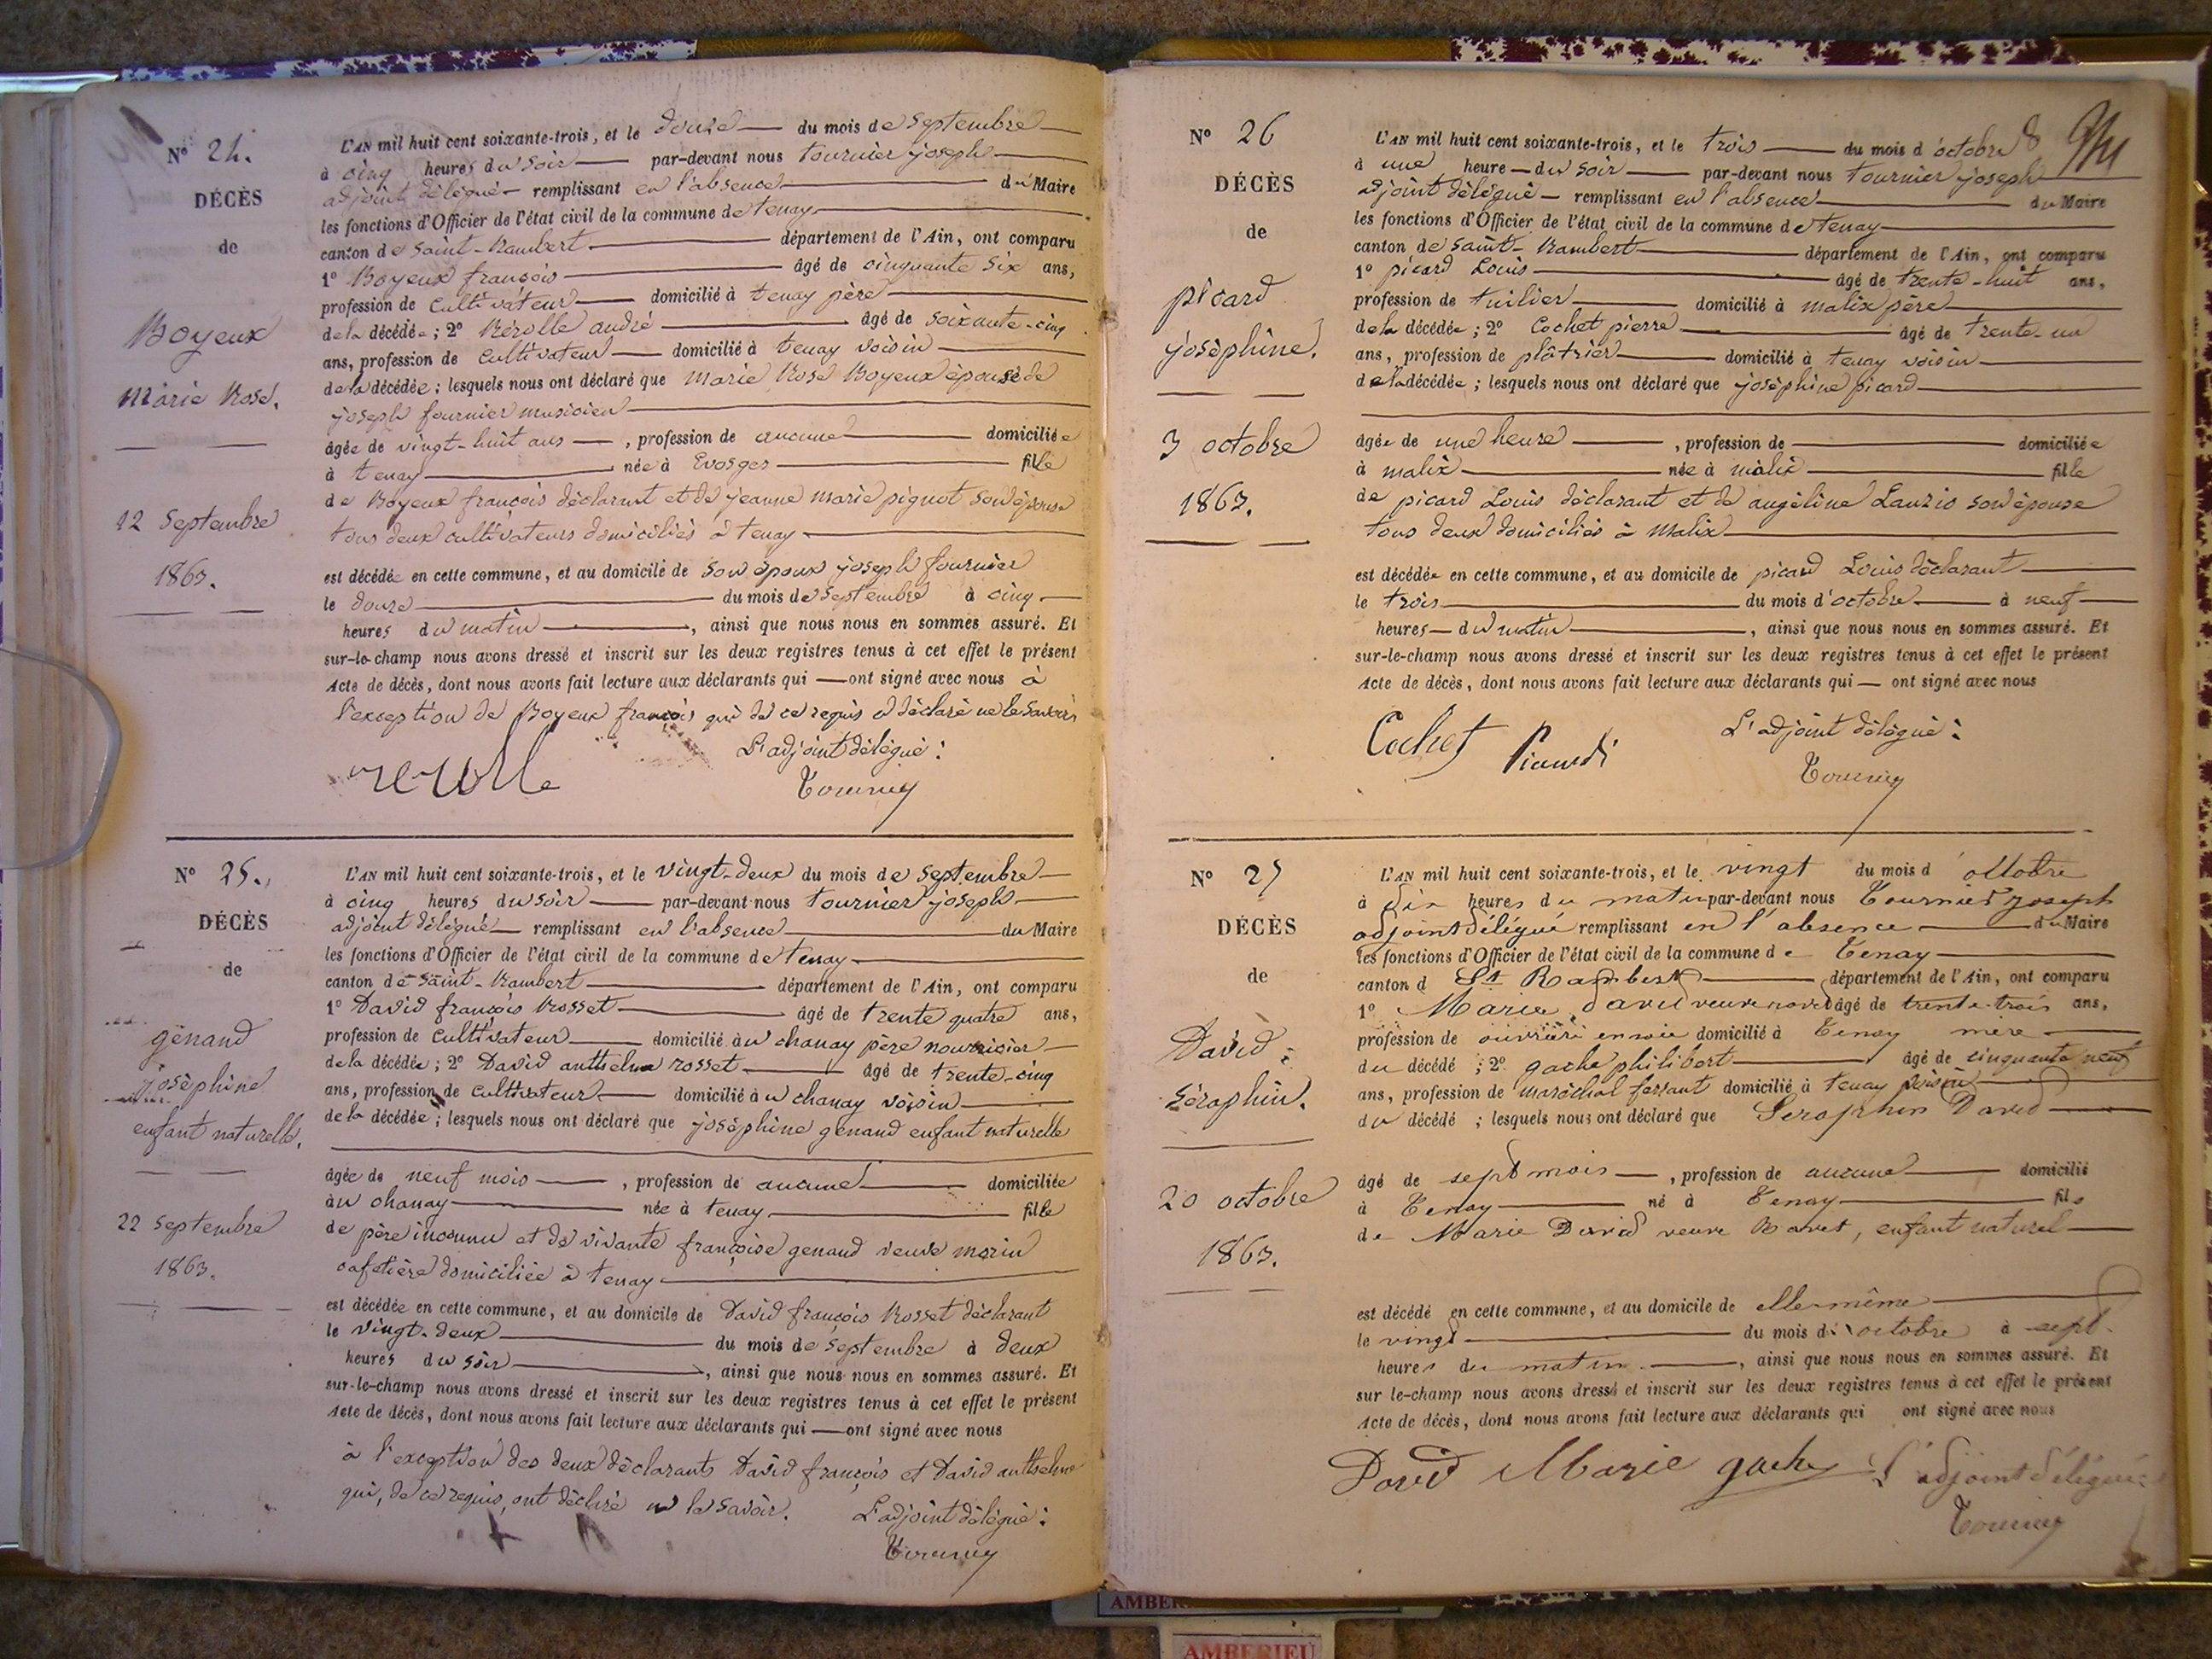 N° 24.
DÉCÈS
de
Boyeux
Marie Rose.
12 septembre
1863.
L'AN mil huit cent soixante-trois, et le douze du mois de septembre
à cinq heures du soir par-devant nous tournier joseph
adjoint délégué remplissant en l'absence du Maire
les fonctions d'Officier de l'état civil de la commune de tenay
canton de saint-Rambert département de l'Ain, ont comparu
1° Boyeux françois âgé de cinquante six ans,
profession de cultivateur domicilié à tenay père
de la décédée; 2° Rérolle andré âgé de soixante-cinq
ans, profession de cultivateur domicilié à tenay voisin
de la décédée; lesquels nous ont déclaré que Marie Rose Boyeux épouse de
joseph fournier musicien
âgée de vingt-huit ans, profession de aucune domiciliée
à tenay née à Evosges fille
de Boyeux françois déclarant et de jeanne marie pignot son épouse
tous deux cultivateurs domiciliés à tenay
est décédée en cette commune, et au domicile de son époux joseph fournier
le douze du mois de septembre à cinq
heures du matin, ainsi que nous nous en sommes assuré. Et
sur-le-champ nous avons dressé et inscrit sur les deux registres tenus à cet effet le présent
Acte de décès, dont nous avons fait lecture aux déclarants qui ont signé avec nous à
l'exception de Boyeux françois qui de ce requis a déclaré ne le savoir
L'adjoint délégué:
rerolle
Tournier
N° 25.
DÉCÈS
de
génand
joséphine
enfant naturelle.
22 septembre
1863.
L'AN mil huit cent soixante-trois, et le vingt-deux du mois de septembre
à cinq heures du soir par-devant nous tournier joseph
adjoint délégué remplissant en l'absence du Maire
les fonctions d'Officier de l'état civil de la commune de tenay
canton de saint-Rambert département de l'Ain, ont comparu
1° David françois Rosset âgé de trente quatre ans,
profession de cultivateur domicilié au chanay père nourricier
de la décédée; 2° David anthelme rosset âgé de trente-cinq
ans, profession de cultivateur domicilié au chanay voisin
de la décédée; lesquels nous ont déclaré que joséphine genand enfant naturelle
âgée de neuf mois, profession de aucune domiciliée
au chanay née à tenay fille
de père inconnu et de vivante françoise genand veuve morin
cafetière domiciliée à tenay
est décédée en cette commune, et au domicile de David françois Rosset déclarant
le vingt-deux du mois de septembre à deux
heures du soir, ainsi que nous nous en sommes assuré. Et
sur-le-champ nous avons dressé et inscrit sur les deux registres tenus à cet effet le présent
Acte de décès, dont nous avons fait lecture aux déclarants qui ont signé avec nous
à l'exception des deux déclarants David françois et David anthelme
qui, de ce requis, ont déclaré ne le savoir. L'adjoint délégué:
Tournier
N° 26
DÉCÈS
de
picard
joséphine.
3 octobre
1863.
L'AN mil huit cent soixante-trois, et le trois du mois d'octobre
à une heure du soir par-devant nous tournier joseph
adjoint délégué remplissant en l'absence du Maire
les fonctions d'Officier de l'état civil de la commune de tenay
canton de saint-Rambert département de l'Ain, ont comparu
1° picard Louis âgé de trente-huit ans,
profession de tuilier domicilié à malix père
de la décédée; 2° Cochet pierre âgé de trente-un
ans, profession de plâtrier domicilié à tenay voisin
de la décédée; lesquels nous ont déclaré que joséphine picard
âgée de une heure, profession de domiciliée
à malix née à malix fille
de picard Louis déclarant et de angéline Lanzio son épouse
tous deux domiciliés à Malix
est décédée en cette commune, et au domicile de picard Louis déclarant
le trois du mois d'octobre à neuf
heures du matin, ainsi que nous nous en sommes assuré. Et
sur-le-champ nous avons dressé et inscrit sur les deux registres tenus à cet effet le présent
Acte de décès, dont nous avons fait lecture aux déclarants qui ont signé avec nous
L'adjoint délégué:
Cochet
Tournier
N° 27
DÉCÈS
de
David
Séraphin.
20 octobre
1863.
L'AN mil huit cent soixante-trois, et le vingt du mois d'octobre
à dix heures du matin par-devant nous Tournier Joseph
adjoint délégué remplissant en l'absence du Maire
les fonctions d'Officier de l'état civil de la commune de Tenay
canton d St Rambert département de l'Ain, ont comparu
1° Marie David veuve âgé de trente-trois ans,
profession de ouvrière en soie domicilié à Tenay mère
du décédé; 2° gache philibert âgé de cinquante neuf
ans, profession de maréchal ferrant domicilié à tenay voisin
du décédé; lesquels nous ont déclaré que Seraphin David
âgé de sept mois, profession de aucune domicilié
à Tenay né à Tenay fils
de Marie David veuve Ravet, enfant naturel
est décédé en cette commune, et au domicile de elle-même
le vingt du mois d'octobre à sept
heures du matin, ainsi que nous nous en sommes assuré. Et
sur le-champ nous avons dressé et inscrit sur les deux registres tenus à cet effet le présent
Acte de décès, dont nous avons fait lecture aux déclarants qui ont signé avec nous
David Marie gache L'adjoint délégué
Tournier
AMBERIEU